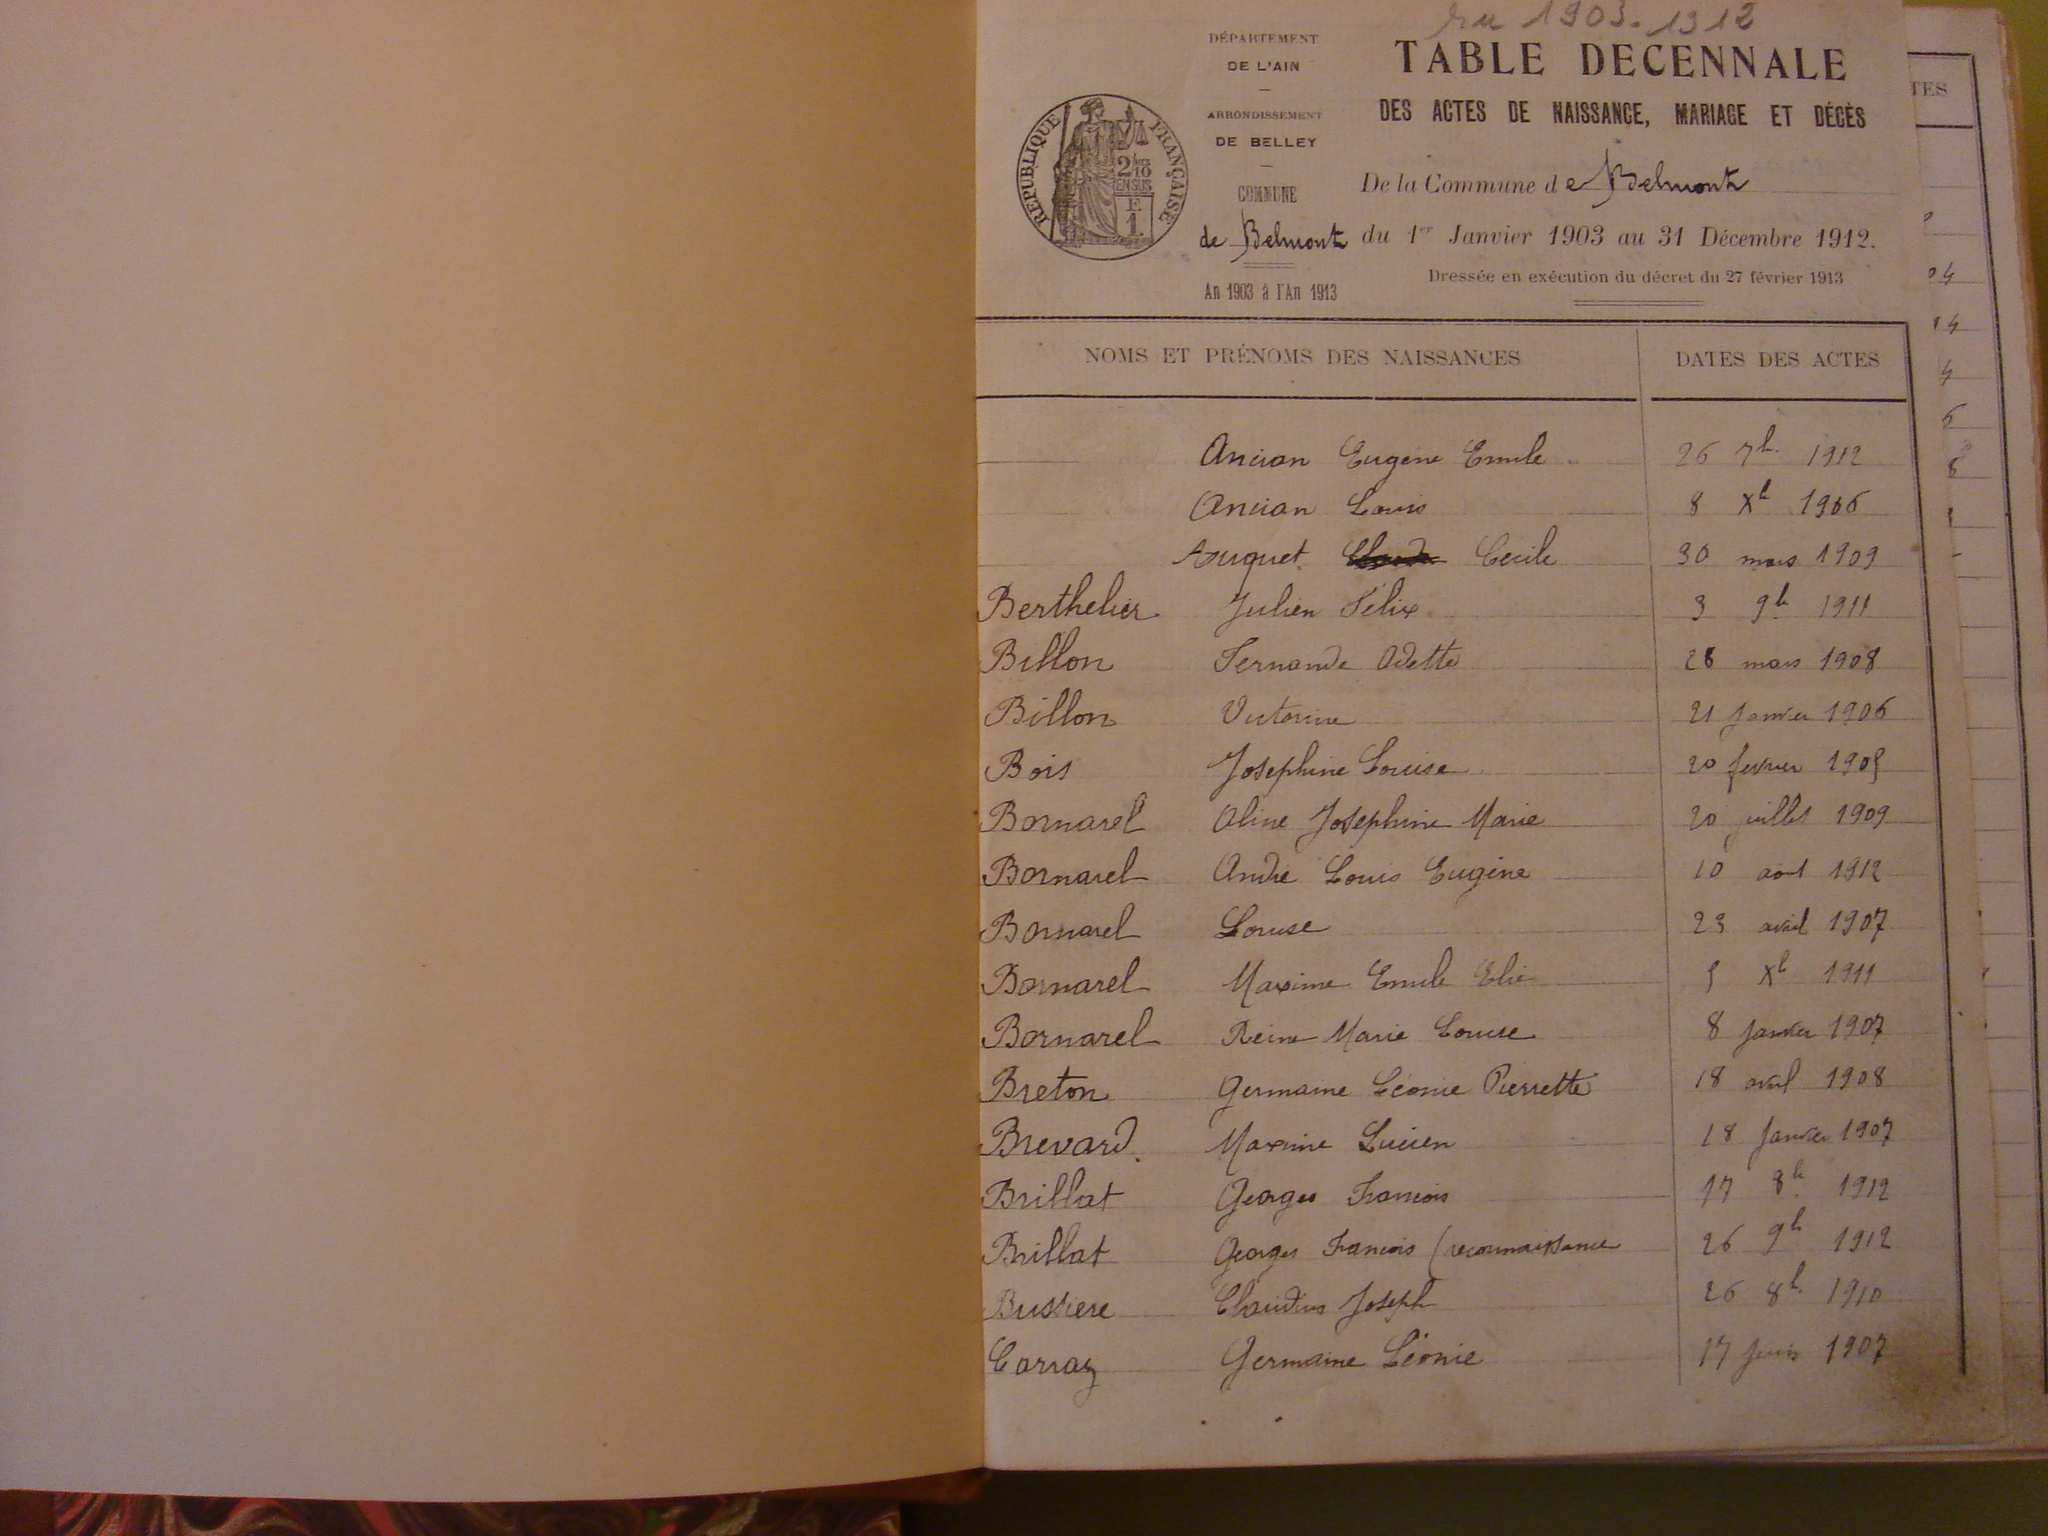 1903-1912
DÉPARTEMENT
DE L'AIN
ARRONDISSEMENT
DE BELLEY
COMMUNE
de Belmont
An 1903 à l'An 1913
RÉPUBLIQUE FRANÇAISE
TABLE DECENNALE
DES ACTES DE NAISSANCE, MARIAGE ET DÉCÈS
De la Commune de Belmont
du 1er Janvier 1903 au 31 Décembre 1912.
Dressée en exécution du décret du 27 février 1913
TES
NOMS ET PRÉNOMS DES NAISSANCES DATES DES ACTES
Ancian Eugène Emile 26 7b 1912
Ancian Louis 8 Xb 1906
Auquet Cecile 30 mars 1909
Berthelier Julien Félix 3 9b 1911
Billon Fernande Odette 28 mars 1908
Billon Victorine 21 janvier 1906
Bois Josephine Louise 20 fevrier 1905
Bornarel Aline Josephine Marie 20 juillet 1909
Bornarel André Louis Eugène 10 aout 1912
Bornarel Louise 23 avril 1907
Bornarel Maxime Emile Elie 5 Xb 1911
Bornarel Reine Marie Louise 8 janvier 1907
Breton Germaine Léonie Pierrette 18 avril 1908
Brevard Maxime Lucien 18 janvier 1907
Brillat Georges Francois 17 8b 1912
Brillat Georges Francois (reconnaissance 26 9b 1912
Bussiere Claudius Joseph 26 8b 1910
Carraz Germaine Léonie 17 juin 1907